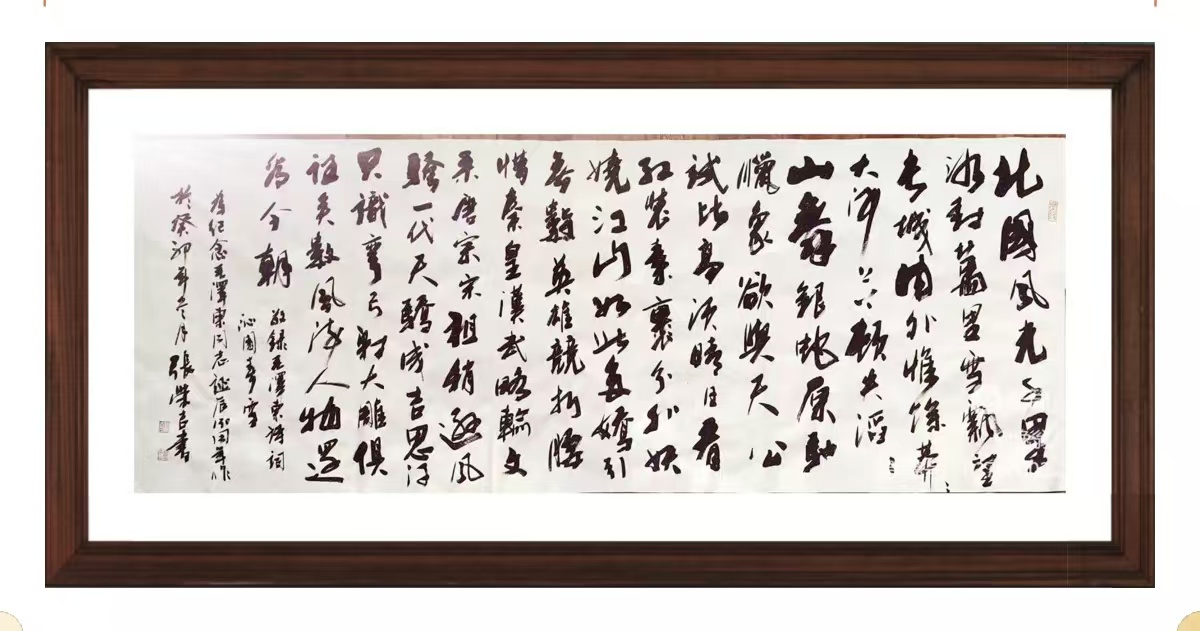 北國風光千里
冰封萬里雪飄望
長城內外惟餘莽々
大河上下頓失滔々
山舞銀蛇原馳
蠟象欲與天公
試比高須晴日看
紅裝素裹分外妖
嬈江山如此多嬌引
無數英雄競折腰
惜秦皇漢武略輸文
采唐宗宋祖稍遜風
騷一代天驕成吉思汗
只識彎弓射大雕俱
往矣數風流人物還
看今朝
敬錄毛澤東詩詞
沁園春雪
為紀念毛澤東同志誕辰周年作
於癸卯年冬月張書